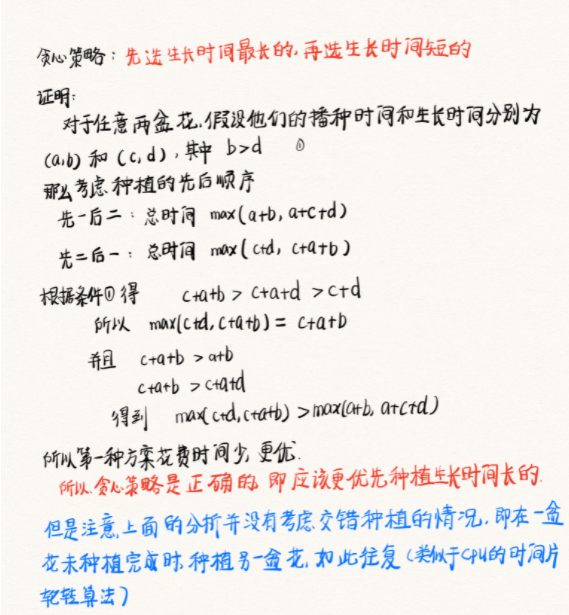 贪心策略：先选生长时间最长的，再选生长时间短的
证明：
对于任意两盆花，假设他们的播种时间和生长时间分别为
(a,b) 和 (c,d)，其中 b>d ①
那么考虑种植的先后顺序
先一后二：总时间 max(a+b, a+c+d)
先二后一：总时间 max(c+d, c+a+b)
根据条件①得 c+a+b > c+a+d > c+d
所以 max(c+d, c+a+b) = c+a+b
并且 c+a+b > a+b
c+a+b > c+a+d
得到 max(c+d, c+a+b) > max(a+b, a+c+d)
所以第一种方案花费时间少，更优.
所以.贪心策略是正确的，即应该更优先种植生长时间长的.
但是注意，上面的分析并没有考虑交错种植的情况，即在一盆
花未种植完成时，种植另一盆花，如此往复（类似于CPU的时间片
轮转算法）